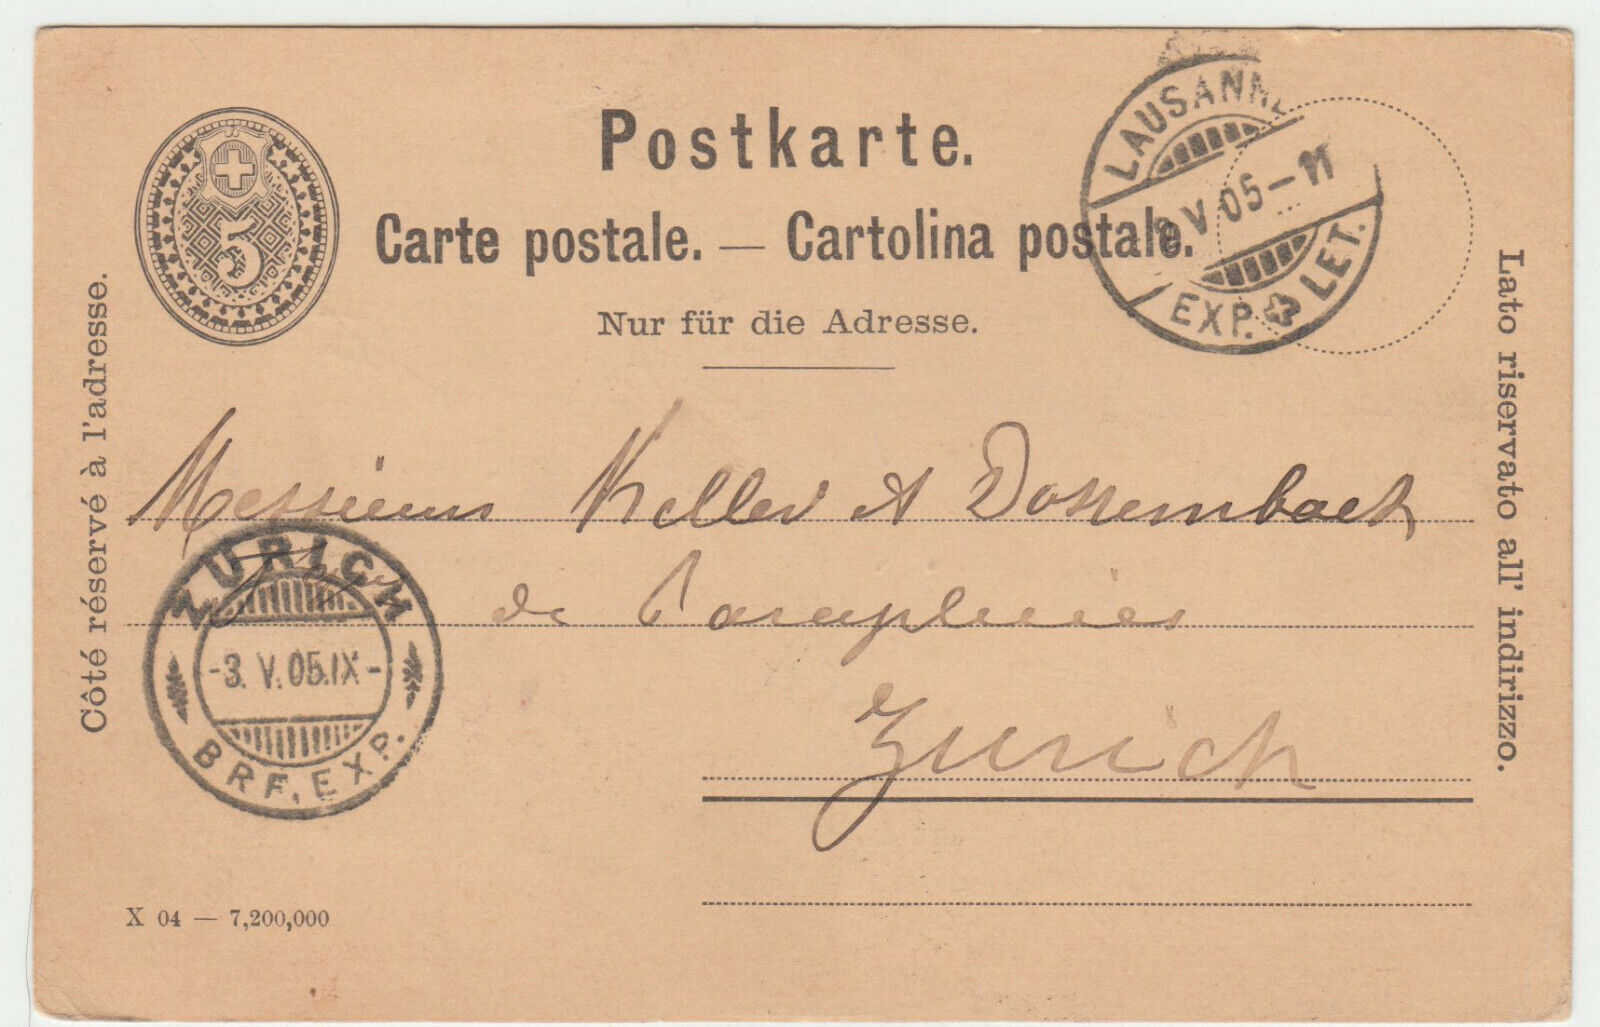 Postkarte.
Carte postale. — Cartolina postale.
Nur für die Adresse.
5
LAUSANNE
V 05 — 11
EXP. LET.
Côté réservé à l'adresse.
Lato riservato all' indirizzo.
Messieurs Keller & Dossenbach
de Parapluies
Zurich
ZÜRICH
-3. V. 05. IX-
BRF. EXP.
X 04 — 7,200,000